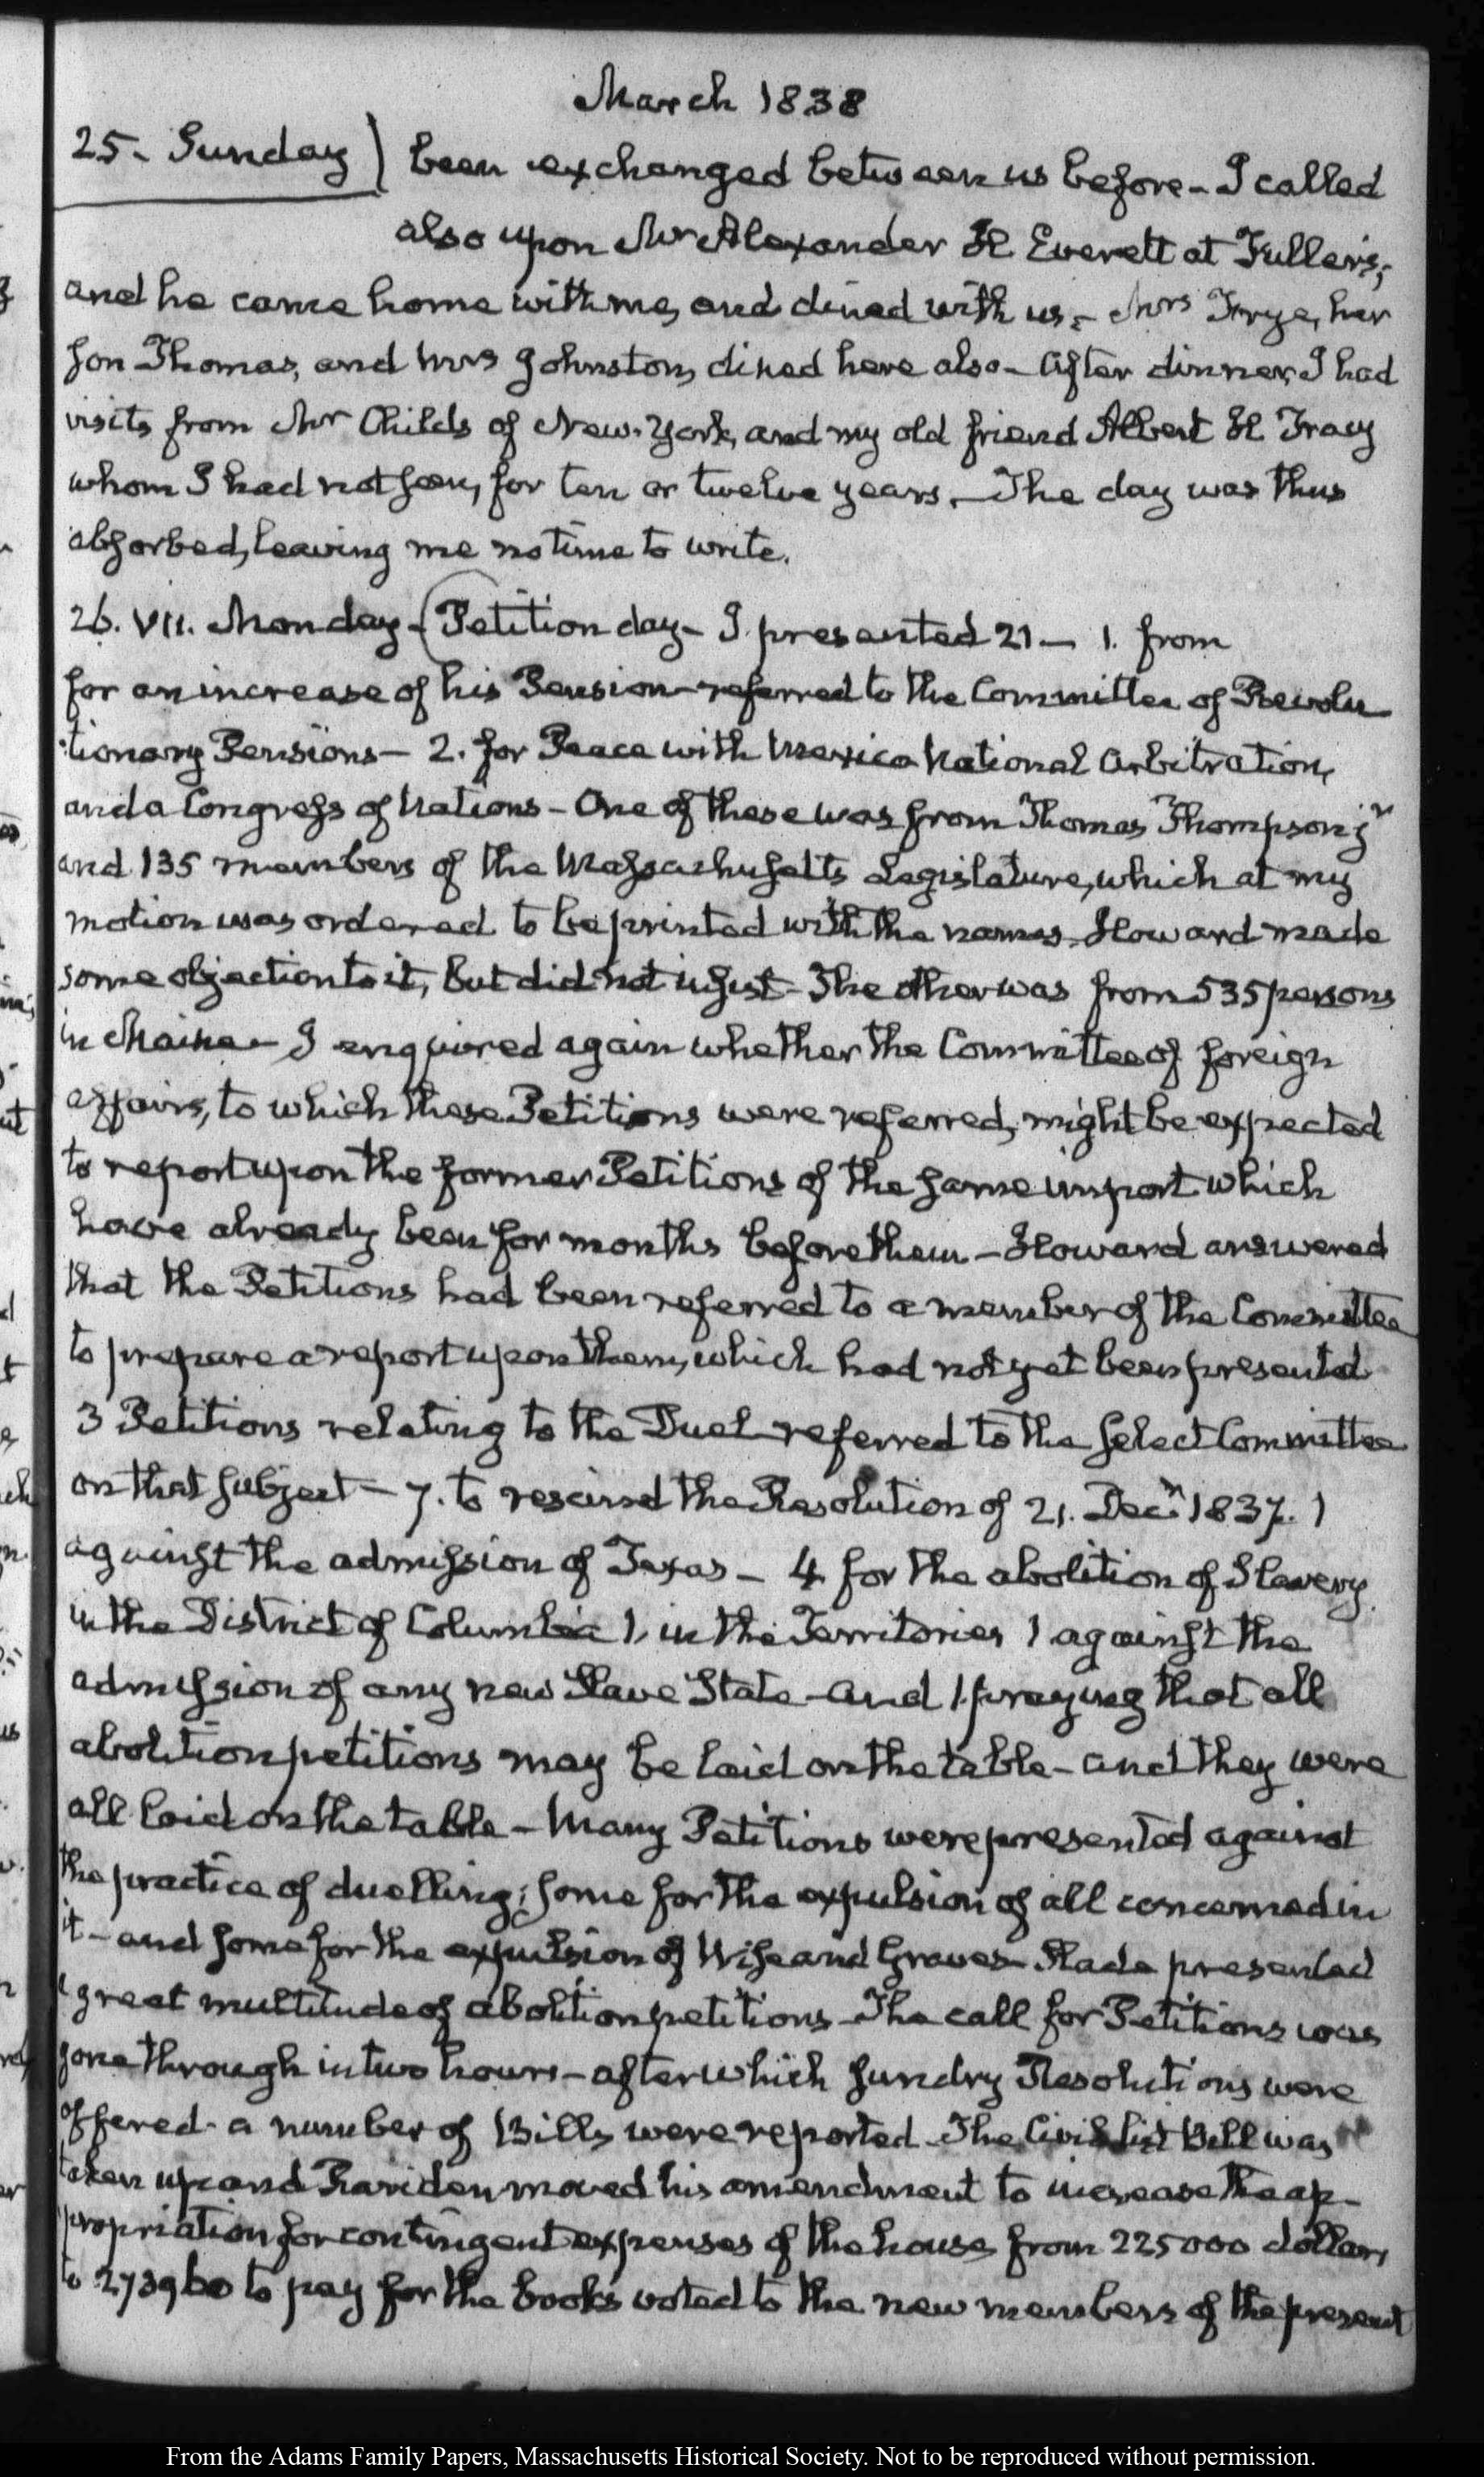 March 1838
25. Sunday) been exchanged between us before - I called
also upon Mr Alexander H Everett at Fuller's;
and he came home with me, and dined with us. - Mrs Frye, her
Son Thomas, and Mrs Johnston, dined here also - After dinner, I had
visits from Mr Childs of New-York, and my old friend Albert H Tracy
whom I had not seen, for ten or twelve years. - The day was thus
absorbed, leaving me no time to write.
26. VII. Monday - (Petition day - I presented 21 - 1. from
for an increase of his Pension - referred to the Committee of Revolu
tionary Pensions - 2. for Peace with Mexico National Arbitration,
and a Congress of Nations - One of these was from Thomas Thompson jr
and 135 members of the Massachusetts Legislature, which at my
motion was ordered to be printed with the names. Howard made
some objection to it, but did not insist - The other was from 535 persons
in Maine - I enquired again whether the Committee of foreign
affairs, to which these Petitions were referred, might be expected
to report upon the former Petitions of the same import which
have already been for months before them - Howard answered
that the Petitions had been referred to a member of the Committee
to prepare a report upon them, which had not yet been presented
3 Petitions relating to the Duel referred to the Select Committee
on that subject - 7. to rescind the Resolution of 21. Decr 1837. 1
against the admission of Texas - 4 for the abolition of Slavery
in the District of Columbia 1, in the Territories 1 against the
admission of any new Slave State - and 1. praying that all
abolition petitions may be laid on the table - and they were
all laid on the table - Many Petitions were presented against
the practice of duelling; some for the expulsion of all concerned in
it - and some for the expulsion of Wise and Graves - Slade presented
a great multitude of abolition petitions - The call for Petitions was
gone through in two hours - after which sundry Resolutions were
offered - a number of Bills were reported - The Civil list Bill was
taken up and Rariden moved his amendment to increase the ap-
propriation for contingent expenses of the house from 225000 dollars,
to to pay for the books voted to the new members of the present
From the Adams Family Papers, Massachusetts Historical Society. Not to be reproduced without permission.